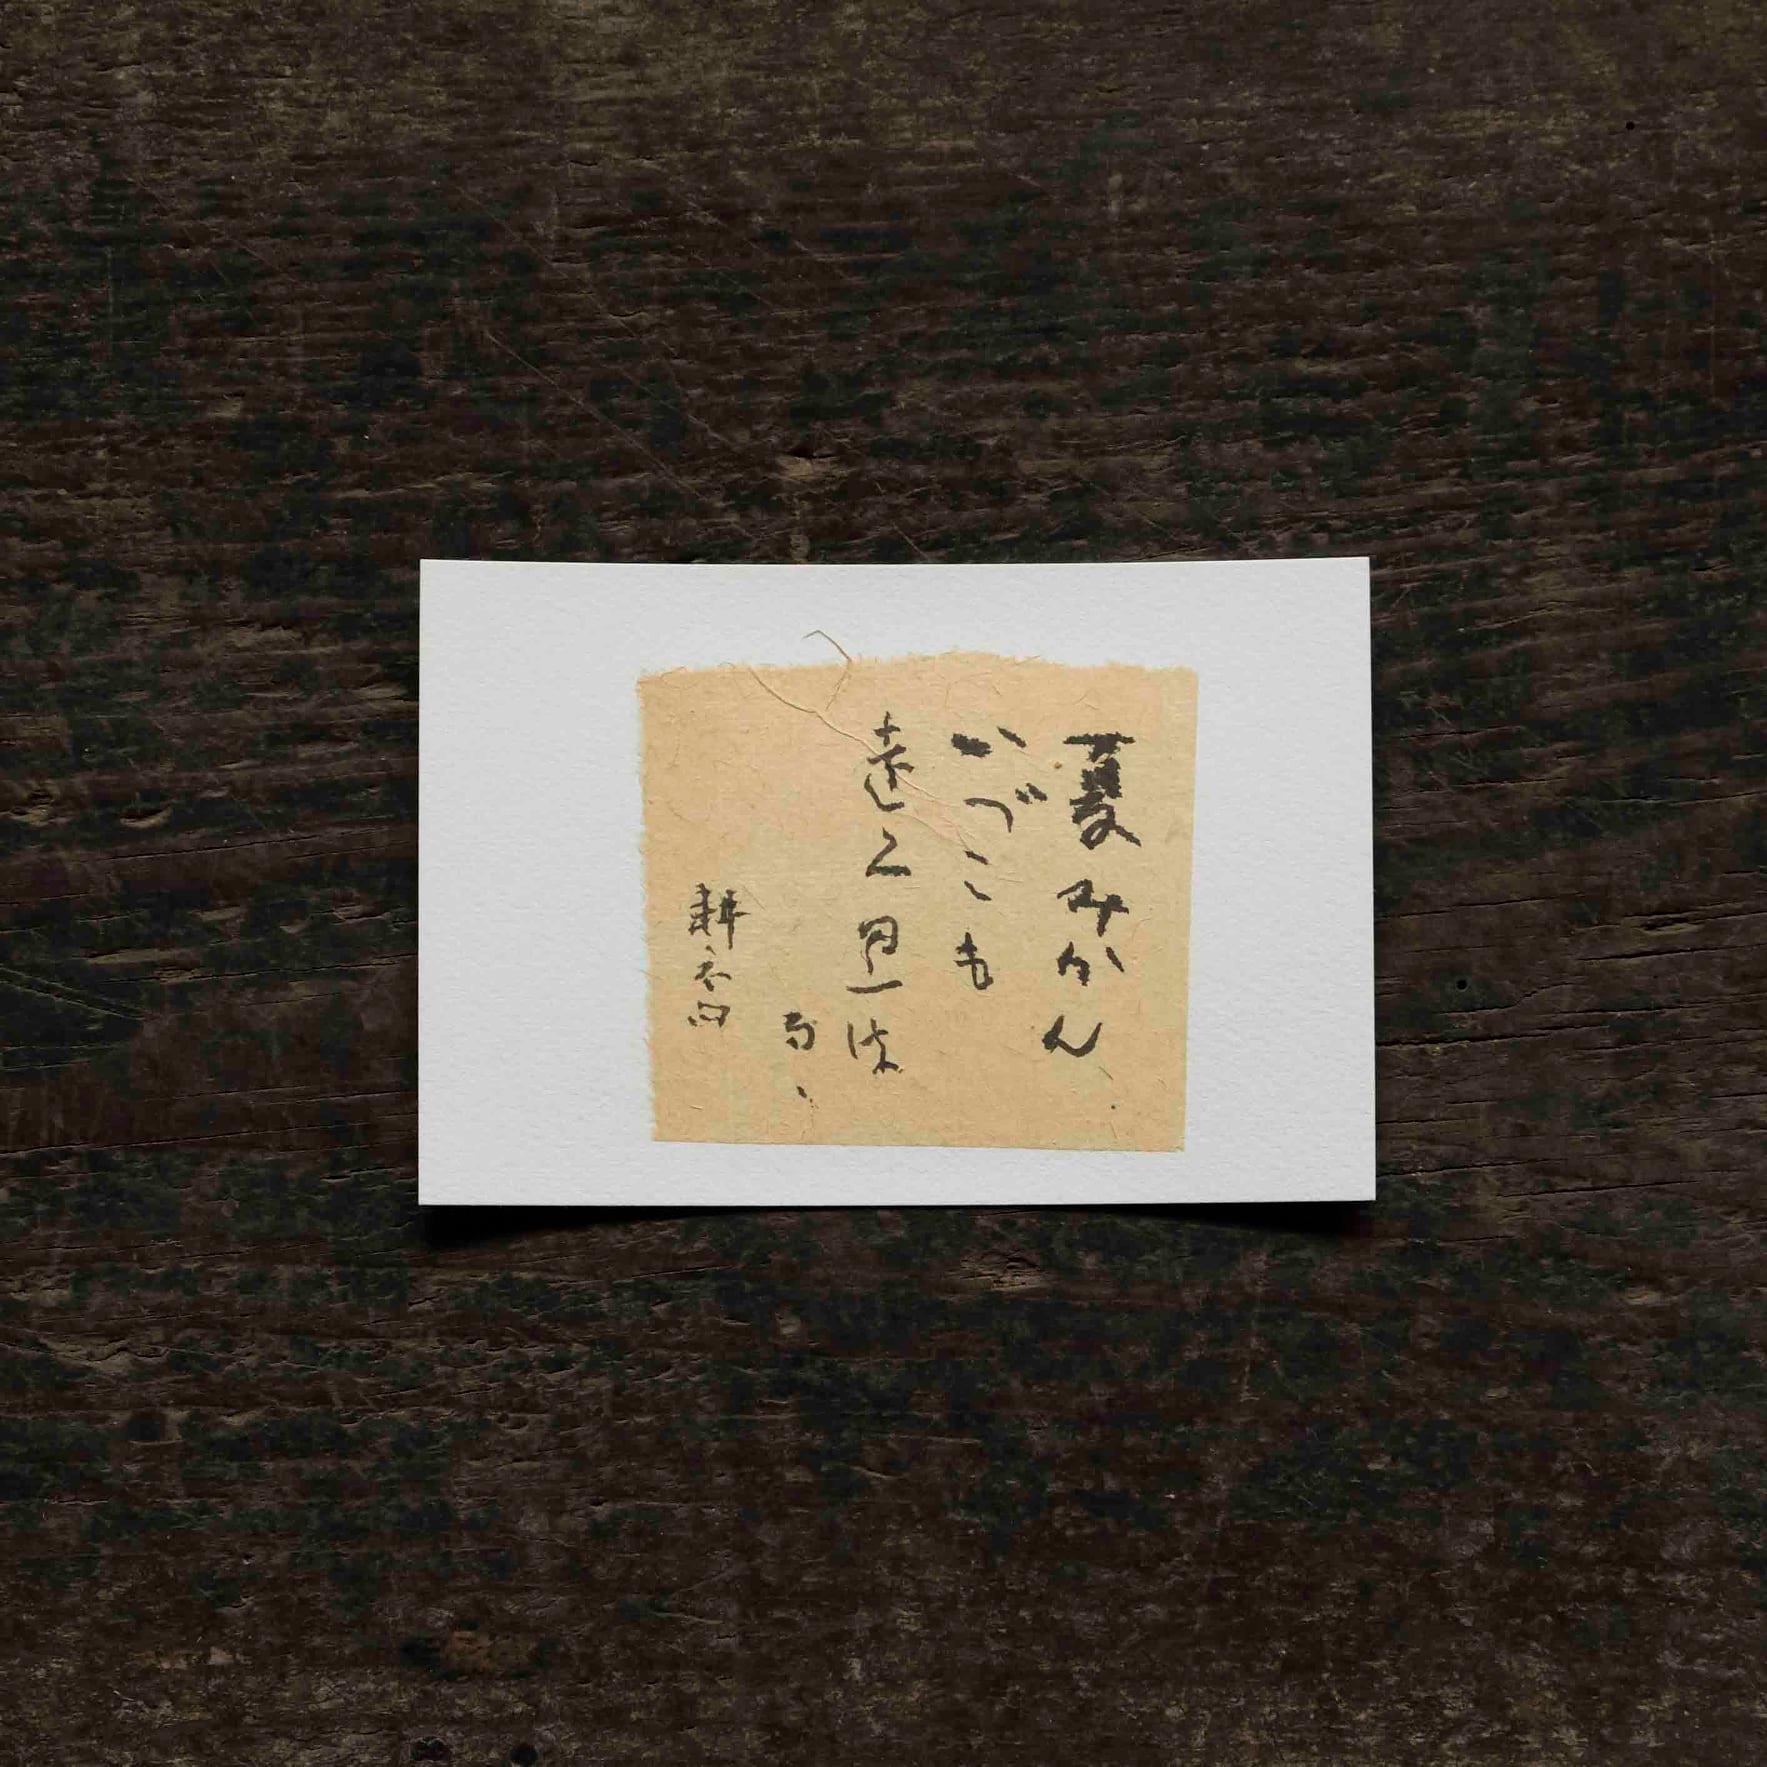 夏みかん
いづこも
遠く思は
るゝ
耕衣